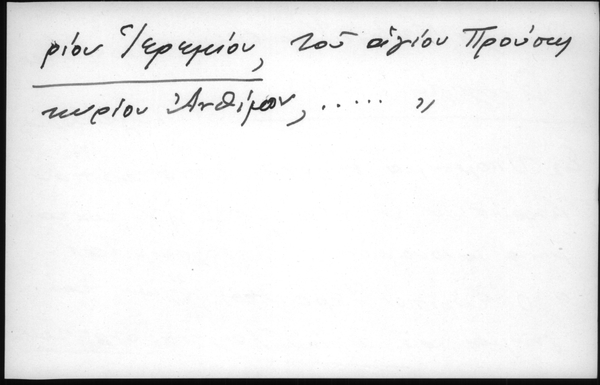 ρίου Ἱερεμίου, τοῦ ἁγίου Προύσης
κυρίου Ἀνθίμου, ..... "